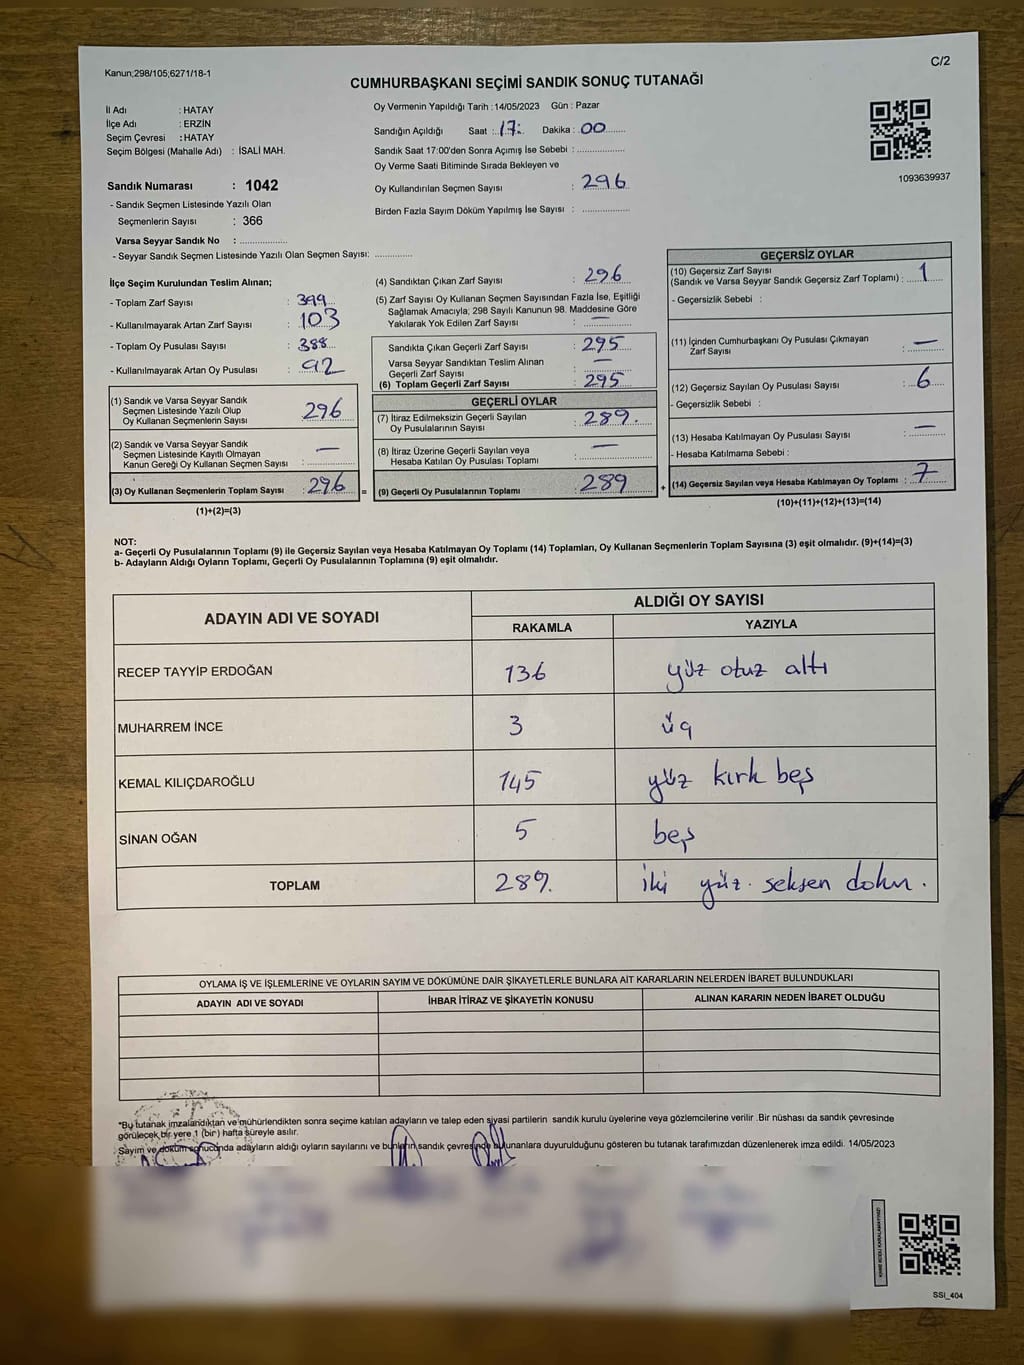 Kanun;298/105;6271/18-1
C/2
CUMHURBAŞKANI SEÇİMİ SANDIK SONUÇ TUTANAĞI
İl Adı : HATAY
İlçe Adı : ERZİN
Seçim Çevresi : HATAY
Seçim Bölgesi (Mahalle Adı) : İSALİ MAH.
Oy Vermenin Yapıldığı Tarih :14/05/2023 Gün : Pazar
Sandığın Açıldığı Saat : 17: Dakika : 00
Sandık Saat 17:00'den Sonra Açımış İse Sebebi :
Oy Verme Saati Bitiminde Sırada Bekleyen ve
Oy Kullandırılan Seçmen Sayısı : 296
Birden Fazla Sayım Döküm Yapılmış İse Sayısı :
1093639937
Sandık Numarası : 1042
- Sandık Seçmen Listesinde Yazılı Olan
Seçmenlerin Sayısı : 366
Varsa Seyyar Sandık No :
- Seyyar Sandık Seçmen Listesinde Yazılı Olan Seçmen Sayısı:
İlçe Seçim Kurulundan Teslim Alınan;
- Toplam Zarf Sayısı : 399
- Kullanılmayarak Artan Zarf Sayısı : 103
- Toplam Oy Pusulası Sayısı : 388
- Kullanılmayarak Artan Oy Pusulası : 92
(1) Sandık ve Varsa Seyyar Sandık
Seçmen Listesinde Yazılı Olup
Oy Kullanan Seçmenlerin Sayısı 296
(2) Sandık ve Varsa Seyyar Sandık
Seçmen Listesinde Kayıtlı Olmayan
Kanun Gereği Oy Kullanan Seçmen Sayısı : —
(3) Oy Kullanan Seçmenlerin Toplam Sayısı : 296 =
(1)+(2)=(3)
(4) Sandıktan Çıkan Zarf Sayısı : 296
(5) Zarf Sayısı Oy Kullanan Seçmen Sayısından Fazla İse, Eşitliği
Sağlamak Amacıyla; 298 Sayılı Kanunun 98. Maddesine Göre
Yakılarak Yok Edilen Zarf Sayısı : —
Sandıkta Çıkan Geçerli Zarf Sayısı : 295
Varsa Seyyar Sandıktan Teslim Alınan
Geçerli Zarf Sayısı : —
(6) Toplam Geçerli Zarf Sayısı : 295
GEÇERLİ OYLAR
(7) İtiraz Edilmeksizin Geçerli Sayılan
Oy Pusulalarının Sayısı : 289
(8) İtiraz Üzerine Geçerli Sayılan veya
Hesaba Katılan Oy Pusulası Toplamı : —
(9) Geçerli Oy Pusulalarının Toplamı : 289 +
GEÇERSİZ OYLAR
(10) Geçersiz Zarf Sayısı
(Sandık ve Varsa Seyyar Sandık Geçersiz Zarf Toplamı) : 1
- Geçersizlik Sebebi :
(11) İçinden Cumhurbaşkanı Oy Pusulası Çıkmayan
Zarf Sayısı : —
(12) Geçersiz Sayılan Oy Pusulası Sayısı : 6
- Geçersizlik Sebebi :
(13) Hesaba Katılmayan Oy Pusulası Sayısı : —
- Hesaba Katılmama Sebebi :
(14) Geçersiz Sayılan veya Hesaba Katılmayan Oy Toplamı : 7
(10)+(11)+(12)+(13)=(14)
NOT:
a- Geçerli Oy Pusulalarının Toplamı (9) ile Geçersiz Sayılan veya Hesaba Katılmayan Oy Toplamı (14) Toplamları, Oy Kullanan Seçmenlerin Toplam Sayısına (3) eşit olmalıdır. (9)+(14)=(3)
b- Adayların Aldığı Oyların Toplamı, Geçerli Oy Pusulalarının Toplamına (9) eşit olmalıdır.
ADAYIN ADI VE SOYADI
ALDIĞI OY SAYISI
RAKAMLA YAZIYLA
RECEP TAYYİP ERDOĞAN 136 yüz otuz altı
MUHARREM İNCE 3 üç
KEMAL KILIÇDAROĞLU 145 yüz kırk beş
SİNAN OĞAN 5 beş
TOPLAM 289. iki yüz seksen dokuz.
OYLAMA İŞ VE İŞLEMLERİNE VE OYLARIN SAYIM VE DÖKÜMÜNE DAİR ŞİKAYETLERLE BUNLARA AİT KARARLARIN NELERDEN İBARET BULUNDUKLARI
ADAYIN ADI VE SOYADI İHBAR İTİRAZ VE ŞİKAYETİN KONUSU ALINAN KARARIN NEDEN İBARET OLDUĞU
*Bu tutanak imzalandıktan ve mühürlendikten sonra seçime katılan adayların ve talep eden siyasi partilerin sandık kurulu üyelerine veya gözlemcilerine verilir .Bir nüshası da sandık çevresinde
görülecek bir yere 1 (bir) hafta süreyle asılır.
Sayım ve döküm sonucunda adayların aldığı oyların sayılarını ve bunların sandık çevresinde bulunanlara duyurulduğunu gösteren bu tutanak tarafımızdan düzenlenerek imza edildi. 14/05/2023
SSI_404